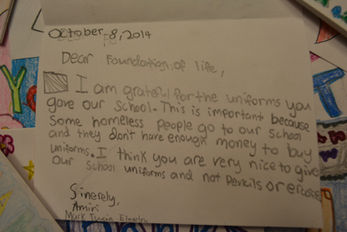 October, 8, 2014
Dear Foundation of life,
I am grateful for the uniforms you
gave our school. This is important because
some homeless people go to our school
and they don't have enough money to buy
uniforms. I think you are very nice to give
our school uniforms and not pencils or
Sinerely,
Amiri
Mark Twain